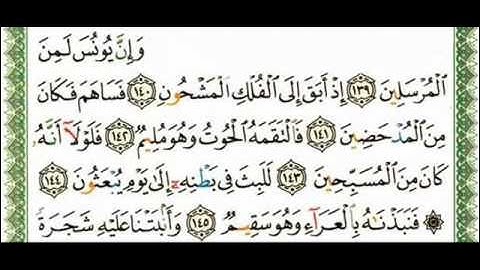 وَإِنَّ يُونُسَ لَمِنَ
الْمُرْسَلِينَ ١٣٩ إِذْ أَبَقَ إِلَى الْفُلْكِ الْمَشْحُونِ ١٤٠ فَسَاهَمَ فَكَانَ
مِنَ الْمُدْحَضِينَ ١٤١ فَالْتَقَمَهُ الْحُوتُ وَهُوَ مُلِيمٌ ١٤٢ فَلَوْلَآ أَنَّهُ
كَانَ مِنَ الْمُسَبِّحِينَ ١٤٣ لَلَبِثَ فِي بَطْنِهِ إِلَى يَوْمِ يُبْعَثُونَ ١٤٤
۞ فَنَبَذْنَٰهُ بِالْعَرَآءِ وَهُوَ سَقِيمٌ ١٤٥ وَأَنۢبَتْنَا عَلَيْهِ شَجَرَةً